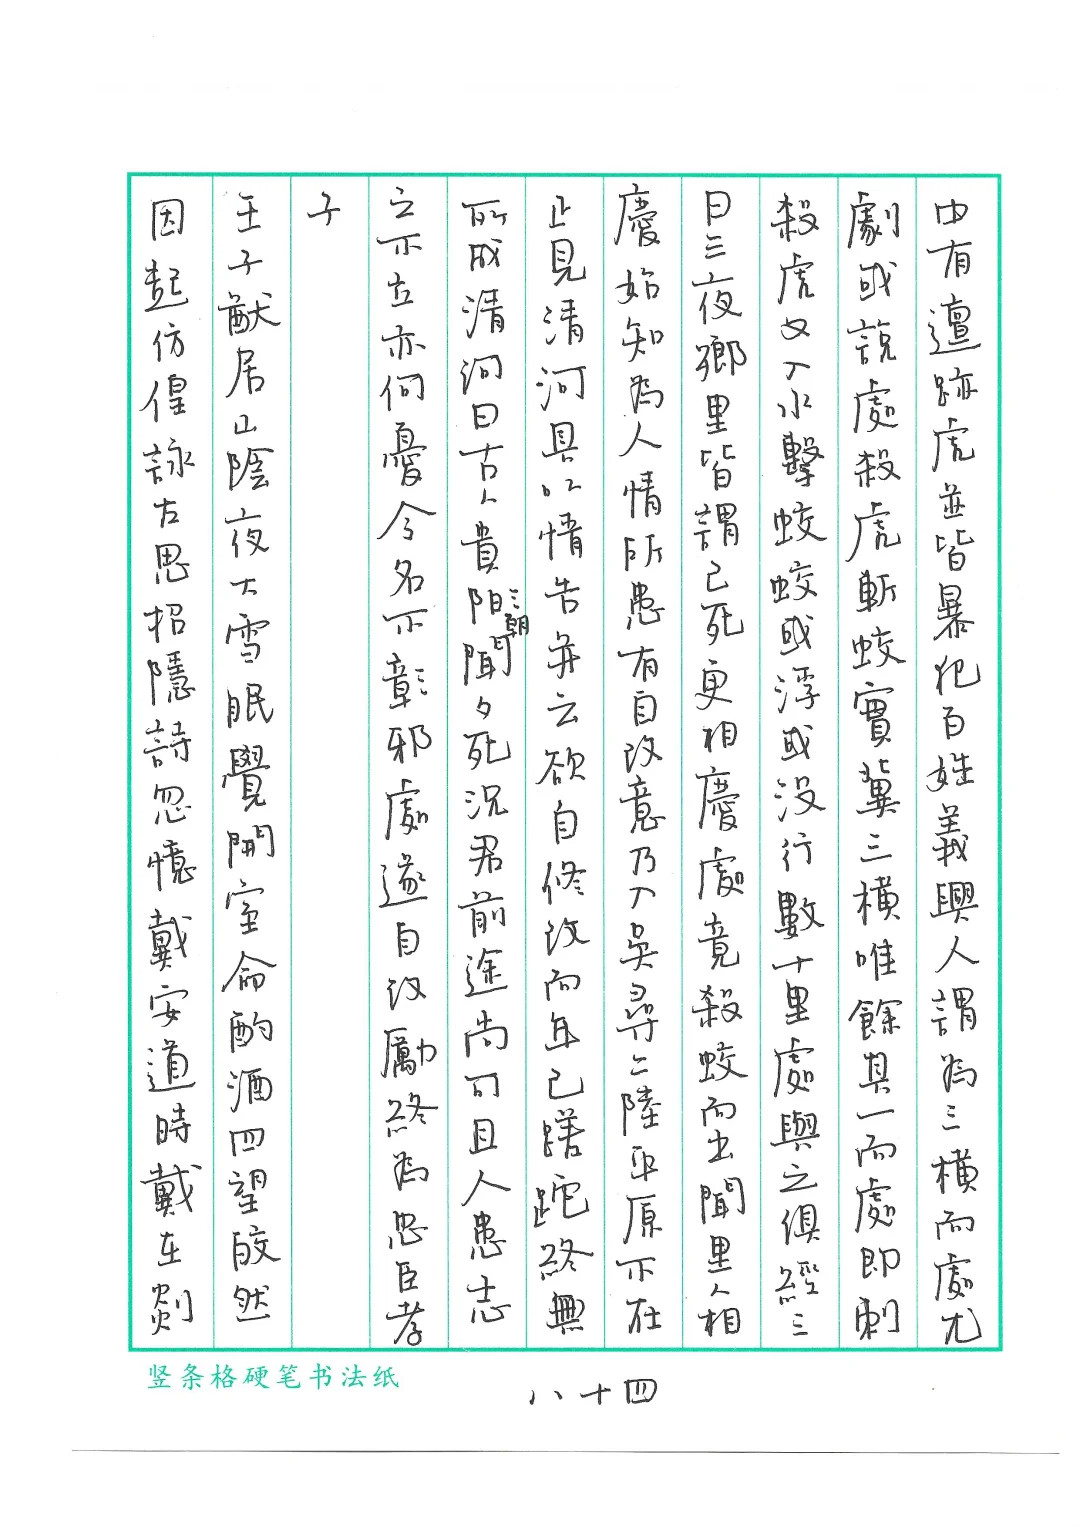 中有邅跡虎並皆暴犯百姓義興人謂為三橫而處尤
劇或說處殺虎斬蛟實冀三橫唯餘其一而處即刺
殺虎又入水擊蛟蛟或浮或沒行數十里處與之俱經三
日三夜鄉里皆謂已死更相慶處竟殺蛟而出聞里人相
慶始知為人情所患有自改意乃入吳尋二陸平原不在
止見清河具以情告并云欲自修改而年已蹉跎終無
所成清河曰古人貴陽朝聞夕死況君前途尚可且人患志
之不立亦何憂令名不彰邪處遂自改勵終為忠臣孝
子
王子猷居山陰夜大雪眠覺開室命酌酒四望皎然
因起仿偟詠古思招隱詩忽憶戴安道時戴在剡
竖条格硬笔书法纸
八十四